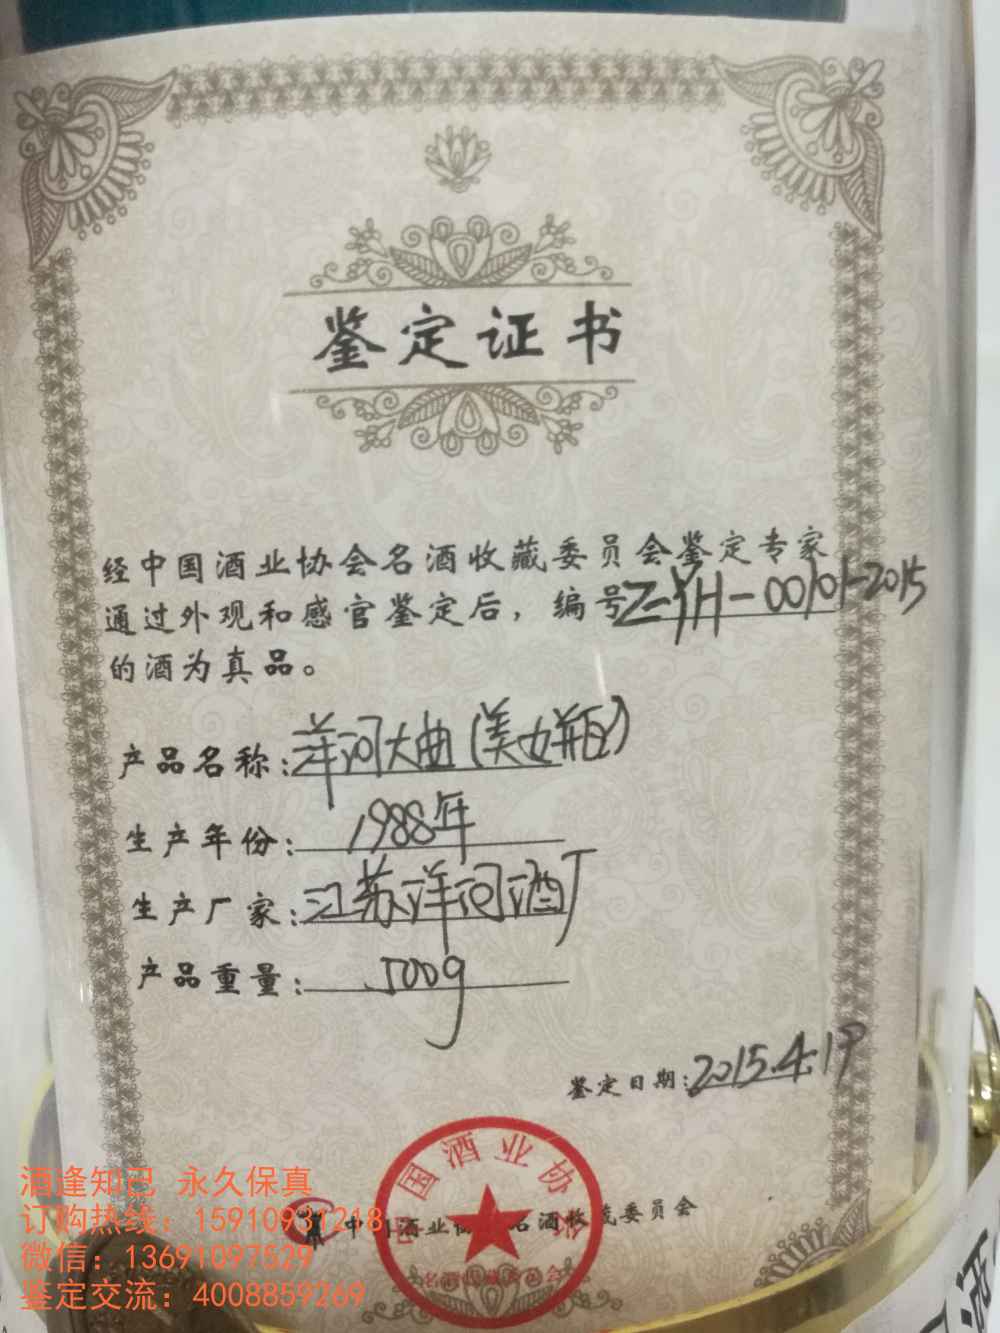 鉴定证书
经中国酒业协会名酒收藏委员会鉴定专家
通过外观和感官鉴定后，编号Z-YH-00101-2015
的酒为真品。
产品名称：洋河大曲(美女瓶)
生产年份：1988年
生产厂家：江苏洋河酒厂
产品重量：500g
鉴定日期：2015.4.19
中国酒业协会名酒收藏委员会
中国酒业协会
名酒收藏委员会
酒逢知己 永久保真
订购热线：15910931218
微信：13691097529
鉴定交流：4008859269